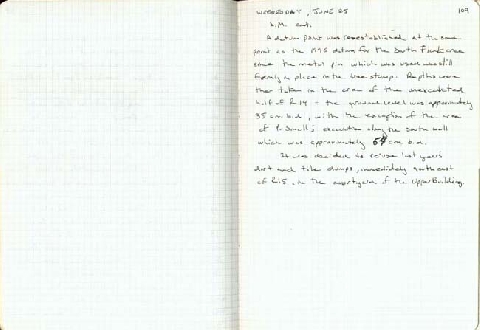 WEDNESDAY, JUNE 25 109
A datum point was reestablished at the same
point as the 1975 datum for the South
since the metal pin which was used was still
firmly in place in the tree stump. Depths were
then taken in the area of the unexcavated
half of - the ground level was approximately
35 cm. b.d., with the exception of the area
of excavation along the south wall
which was approximately cm. b.d.
It was decided to reuse last years
dirt and dumps, immediately
of , in the of the Upper Building.